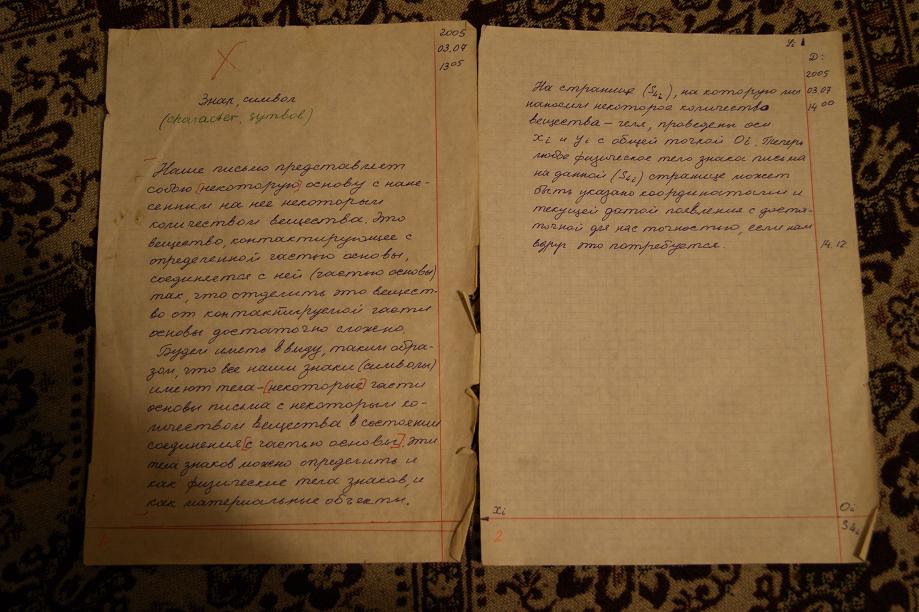 X
2005
03.07
13 05
Знак, символ
(character, symbol)
Наше письмо представляет
собою [некоторую] основу с нане-
сенным на нее некоторым
количеством вещества. Это
вещество, контактирующее с
определенной частью основы,
соединяется с ней (частью основы)
так, что отделить это вещест-
во от контактируемой части
основы достаточно сложно.
Будем иметь в виду, таким обра-
зом, что все наши знаки (символы)
имеют тела - [некоторые] части
основы письма с некоторым ко-
личеством вещества в состоянии
соединения [с частью основы]. Эти
тела знаков можно определить и
как физические тела знаков, и
как материальные объекты.
1
Yi
D:
2005
03.07
14 00
На странице (S4i), на которую мы
наносим некоторое количество
вещества - геля, проведены оси
xi и yi с общей точкой Oi. Теперь
любое физическое тело знака письма
на данной (S4i) странице может
быть указано координатами и
текущей датой появления с доста-
точной для нас точностью, если нам
вдруг это потребуется.
14.12.
Xi
Oi
2
S4i